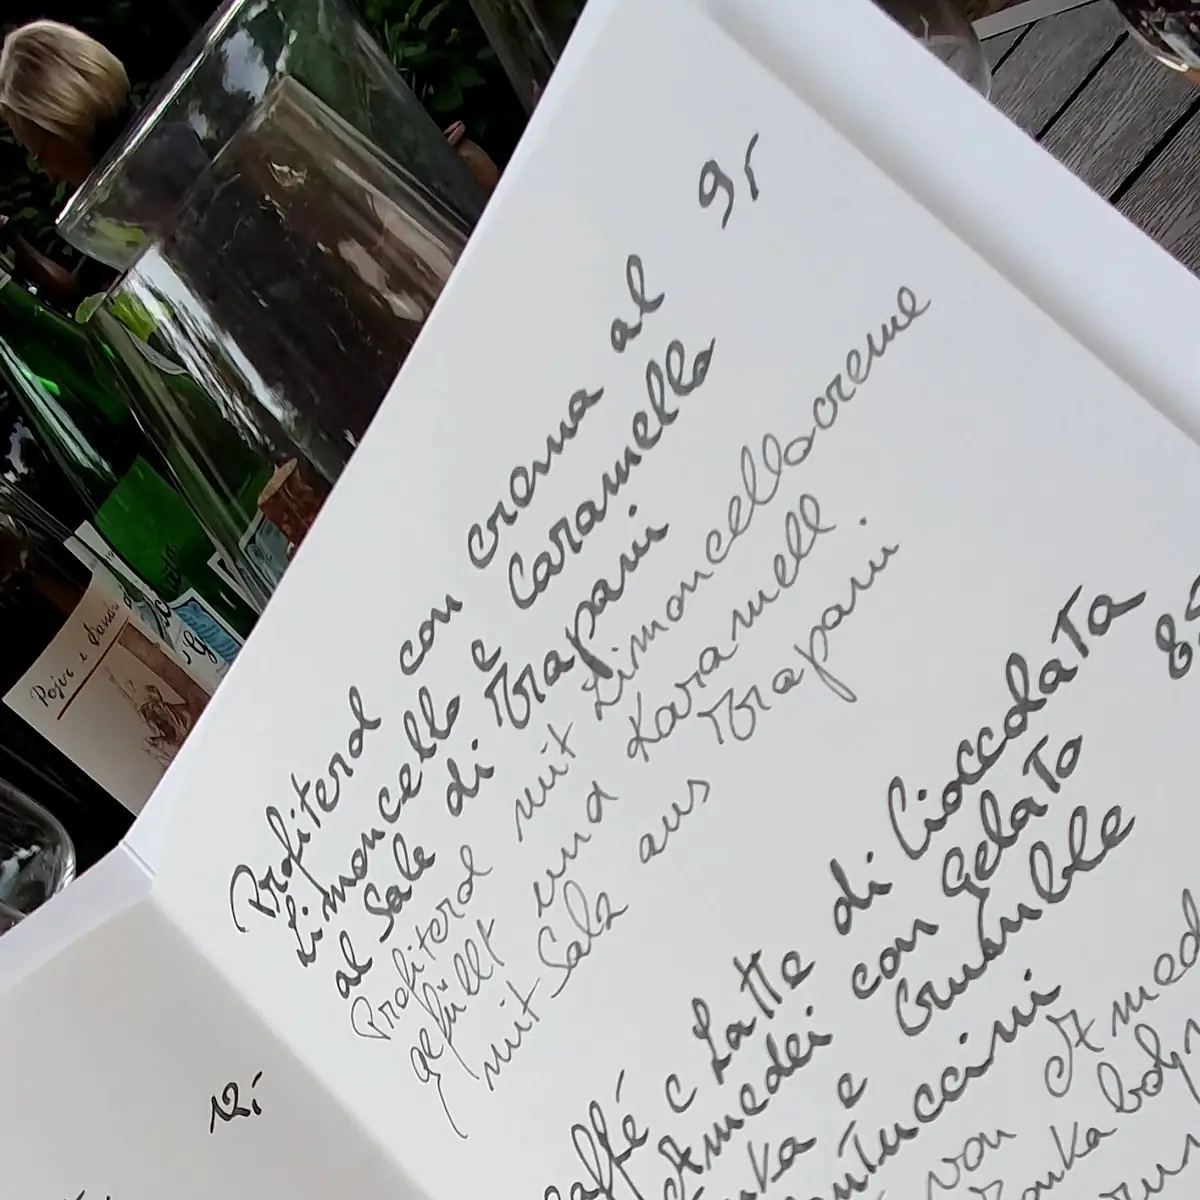 9,
Profiterol con crema al
Limoncello e Caramello
al Sale di Trapani
Profiterol mit Limoncellocreme
gefüllt und Karamell
mit Salz aus Trapani
8,
Caffé e Latte di Cioccolata
Amedei con gelato
e Crumble
von Amed
12,
Pojer e Sandri